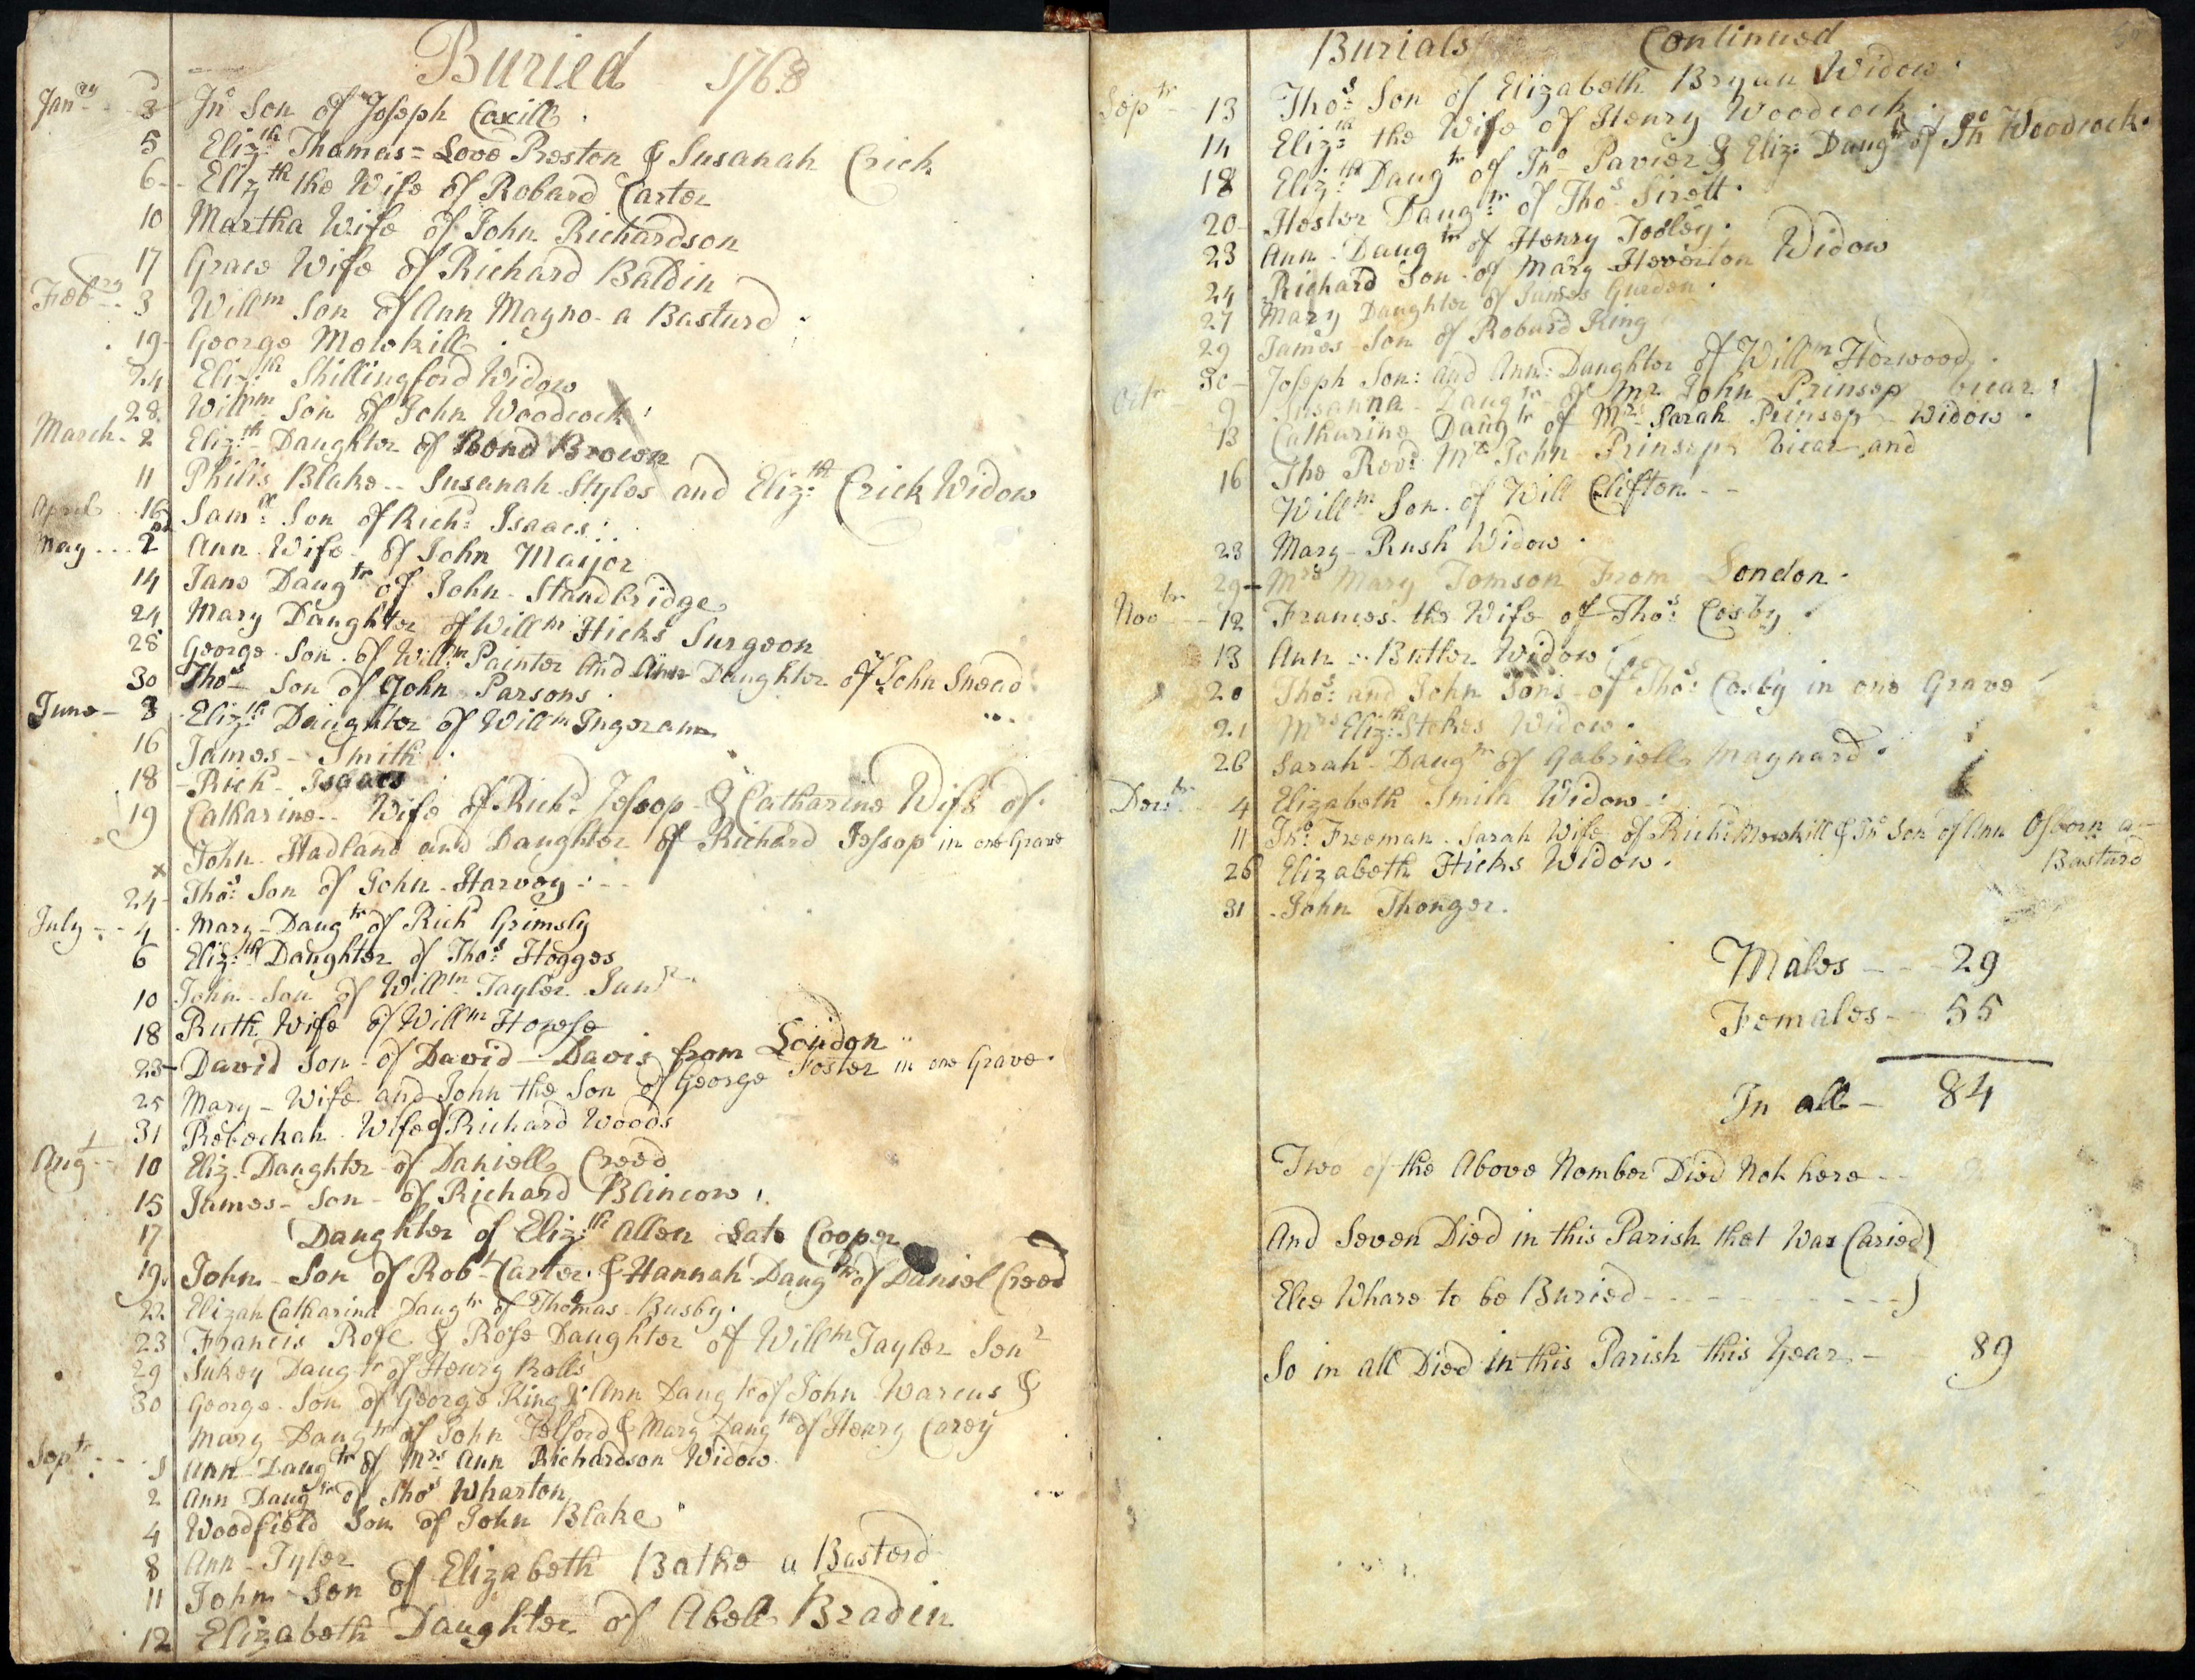 Buried 1768
Janry 3d Jno Son of Joseph Coxill
5 Elizth Thomas = Love Preston & Susanah Crick
6 Elizth the Wife of Robard Carter
10 Martha Wife of John Richardson
17 Grace Wife of Richard Baldin
Febry 3 Willm Son of Ann Mayno a Basturd
19 George Mowkill
24 Elizth Shillingford Widow
28 Willm Son of John Woodcock
March 2 Elizth Daughter of Bond Brown
11 Philis Blake Susanah Styles and Elizth Crick Widow
April 16 Samll Son of Richd Isaacs
May 2d Ann Wife of John Mayor
14 Jane Daugtr of John Standbridge
24 Mary Daughter of Willm Hicks Surgeon
28 George Son of Willm Painter And Ann Daughter of John Snead
30 Thos Son of John Parsons
June 3 Elizth Daughter of Willm Ingeram
16 James Smith
18 Richd Isaacs
19 Catharine Wife of Richd Jessop & Catharine Wife of
John Hadland and Daughter of Richard Jessop in one Grave
x
24 Thos Son of John Harvey
July 4 Mary Daugtr of Richd Grimsly
6 Elizth Daughter of Thos Hogges
10 John Son of Willm Taylor
18 Ruth Wife of Willm Howse
23 David Son of David Davis from London
25 Mary Wife and John the Son of George Foster in one Grave
31 Rebeckah Wife of Richard Woods
Augt 10 Eliz Daughter of Daniell Creed
15 James Son of Richard Blincow
17 Daughter of Elizth Allen Late Cooper
19 John Son of Robt Carter & Hannah Daugtr of Daniel Creed
22 Elizah Catharina Daugtr of Thomas Busby
23 Francis Rose & Rose Daughter of Willm Taylor Senr
29 Sukey Daugtr of Henry Rolls
30 George Son of George King & Ann Daugtr of John Warcus &
Mary Daugtr of John Telford & Mary Daugtr of Henry Carey
Septr 1 Ann Daugtr of Mrs Ann Richardson Widow
2 Ann Daugtr of Thos Wharton
4 Woodfield Son of John Blake
8 Ann Tyler
11 John Son of Elizabeth Bathe a Basterd
12 Elizabeth Daughter of Abell Bradin
Burials Continued
Septr 13 Thos Son of Elizabeth Bryan Widow
14 Elizth the Wife of Henry Woodcock
18 Elizth Daugtr of Jno Pavier & Eliz: Daugtr of Jno Woodcock
20 Hester Daugtr of Thos Sirett
23 Ann Daugtr of Henry Tooley
24 Richard Son of Mary Heverton Widow
27 Mary Daughter of James Gurden
29 James Son of Robard King
30 Joseph Son: and Ann: Daughter of Willm Horwood
Octr 9 Susanna Daugtr of Mr John Prinsep vicar
13 Catharine Daugtr of Mrs Sarah Prinsep Widow
16 The Revd Mr John Prinsep Vicar and
Willm Son of Will Clifton
23 Mary Rush Widow
29 Mrs Mary Tomson From London
Novtr 12 Frances the Wife of Thos Cosby
13 Ann Butler Widow
20 Thos and John Sons of Thos Cosby in one Grave
21 Mrs Elizth Stokes Widow
26 Sarah Daugtr of Gabriell Maynard
Dectr 4 Elizabeth Smith Widow
11 Jno Freeman Sarah Wife of Richd Mowkill & Jno Son of Ann Osborn a
Basturd
26 Elizabeth Hicks Widow
31 John Thonger
Males 29
Females 55
In all 84
Two of the Above Nomber Died Not here
And Seven Died in this Parish that Was Caried
Elce Whare to be Buried
So in all Died in this Parish this Year 89